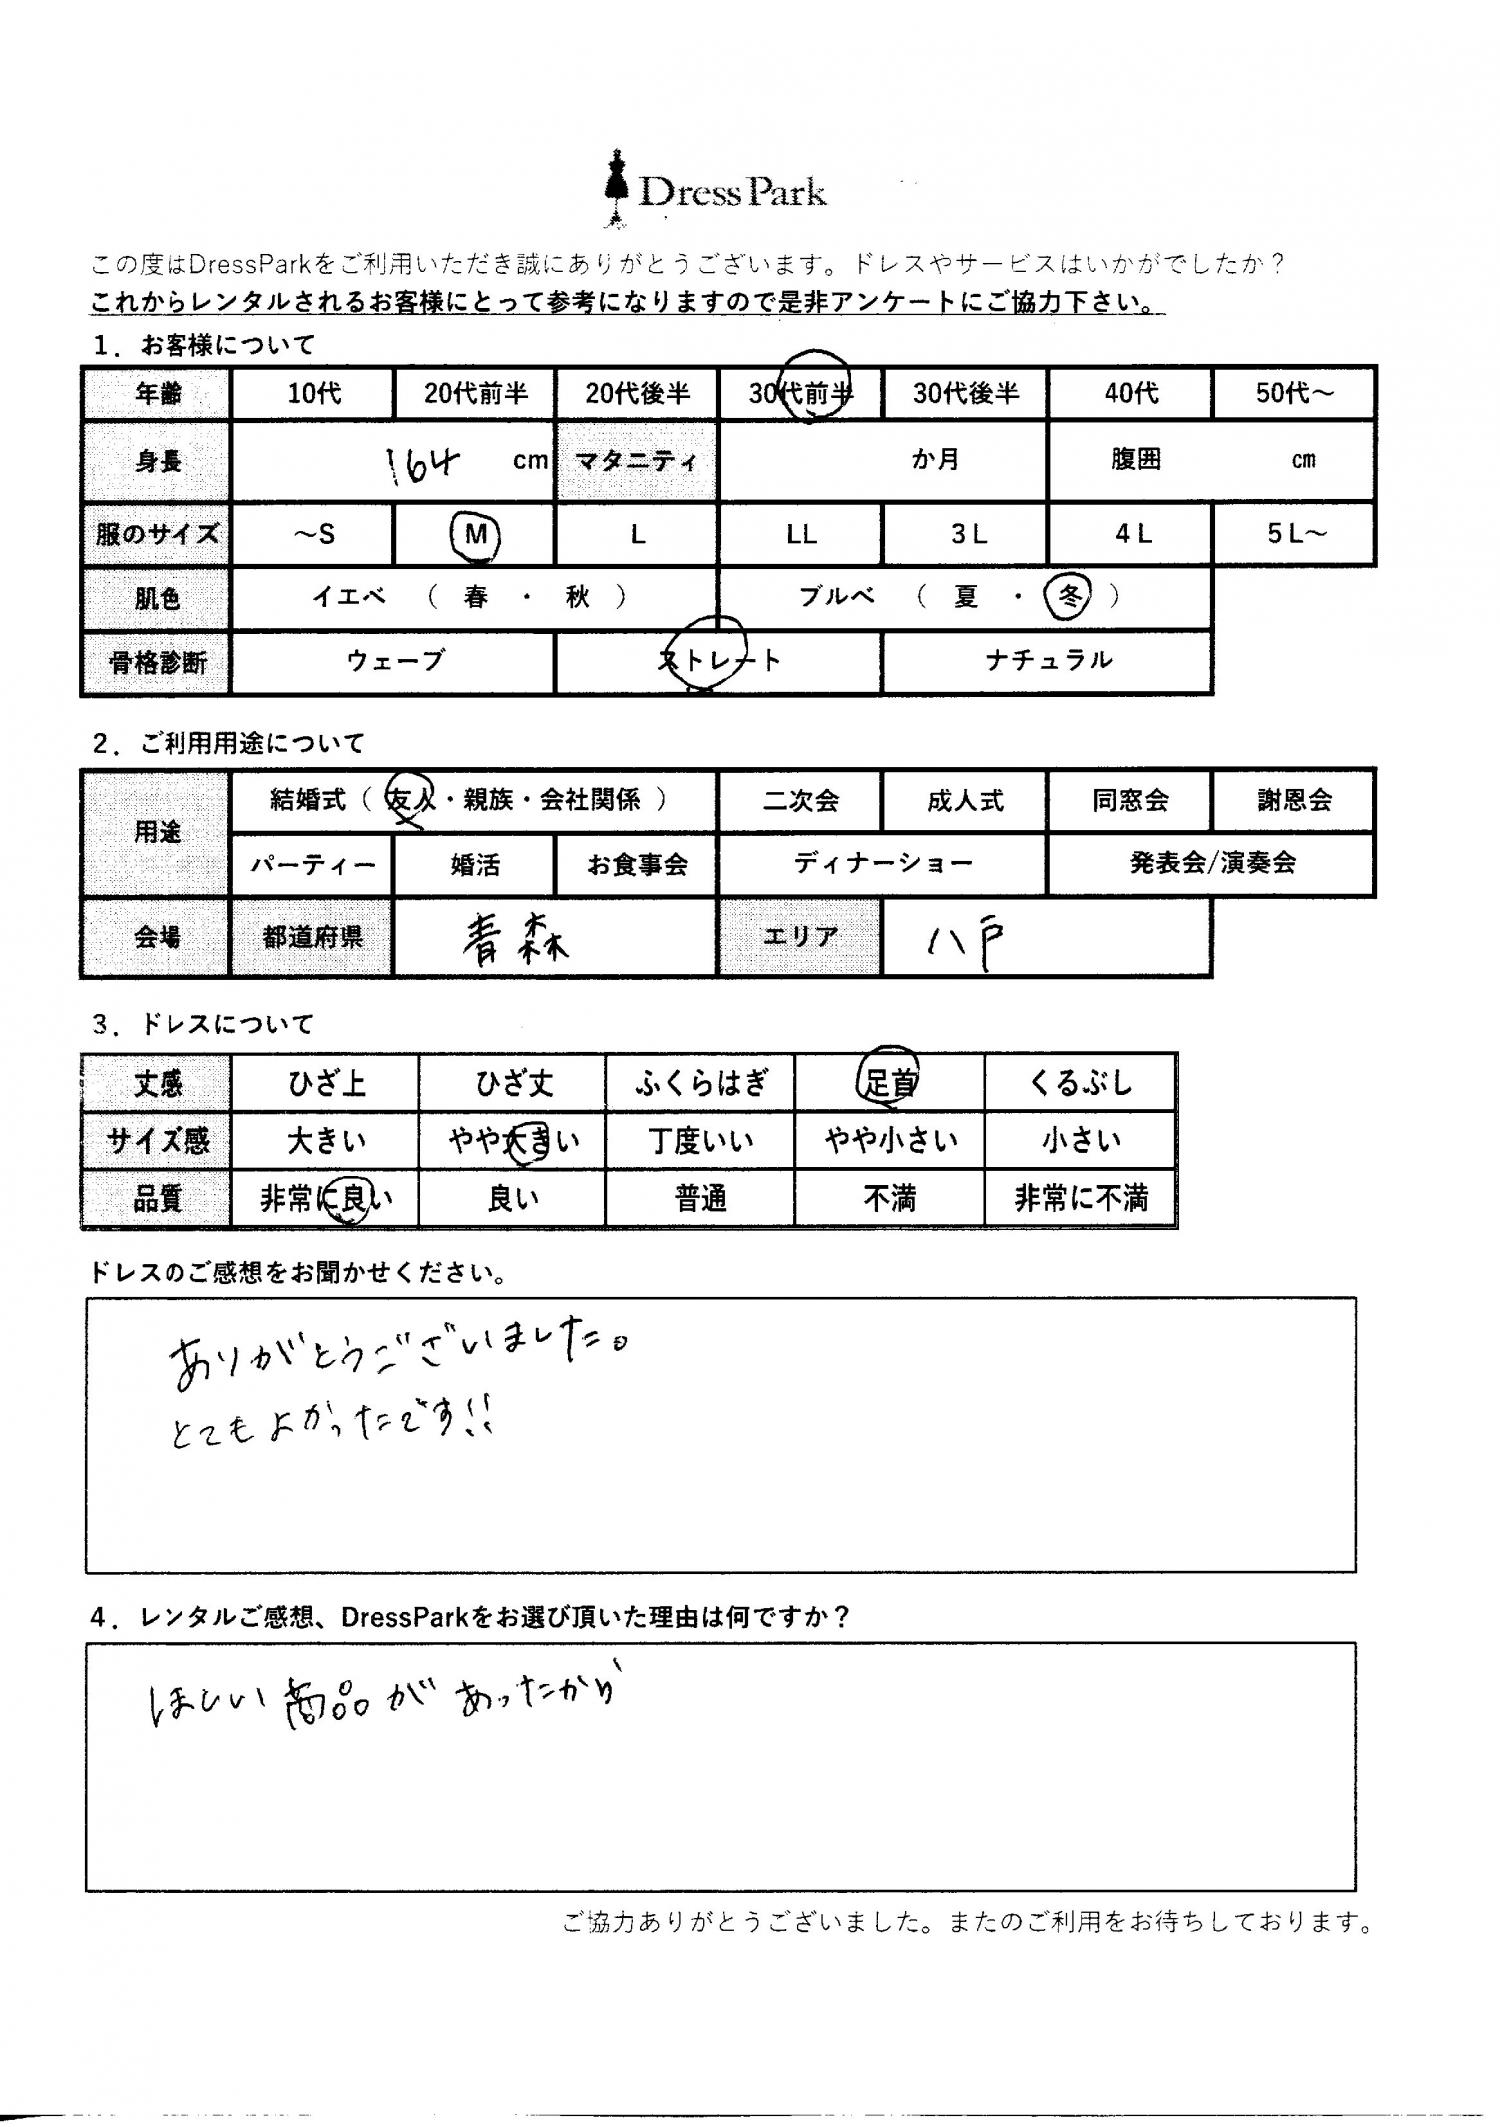 DressPark
この度はDressParkをご利用いただき誠にありがとうございます。ドレスやサービスはいかがでしたか？
これからレンタルされるお客様にとって参考になりますので是非アンケートにご協力下さい。
1．お客様について
年齢 10代 20代前半 20代後半 30代前半 30代後半 40代 50代～
身長 164 cm マタニティ か月 腹囲 cm
服のサイズ ～S M L LL 3L 4L 5L～
肌色 イエベ （ 春 ・ 秋 ） ブルベ （ 夏 ・ 冬 ）
骨格診断 ウェーブ ストレート ナチュラル
2．ご利用用途について
用途 結婚式（ 友人・親族・会社関係 ） 二次会 成人式 同窓会 謝恩会
パーティー 婚活 お食事会 ディナーショー 発表会/演奏会
会場 都道府県 青森 エリア 八戸
3．ドレスについて
丈感 ひざ上 ひざ丈 ふくらはぎ 足首 くるぶし
サイズ感 大きい やや大きい 丁度いい やや小さい 小さい
品質 非常に良い 良い 普通 不満 非常に不満
ドレスのご感想をお聞かせください。
ありがとうございました。
とてもよかったです!!
4．レンタルご感想、DressParkをお選び頂いた理由は何ですか？
ほしい商品があったから
ご協力ありがとうございました。またのご利用をお待ちしております。